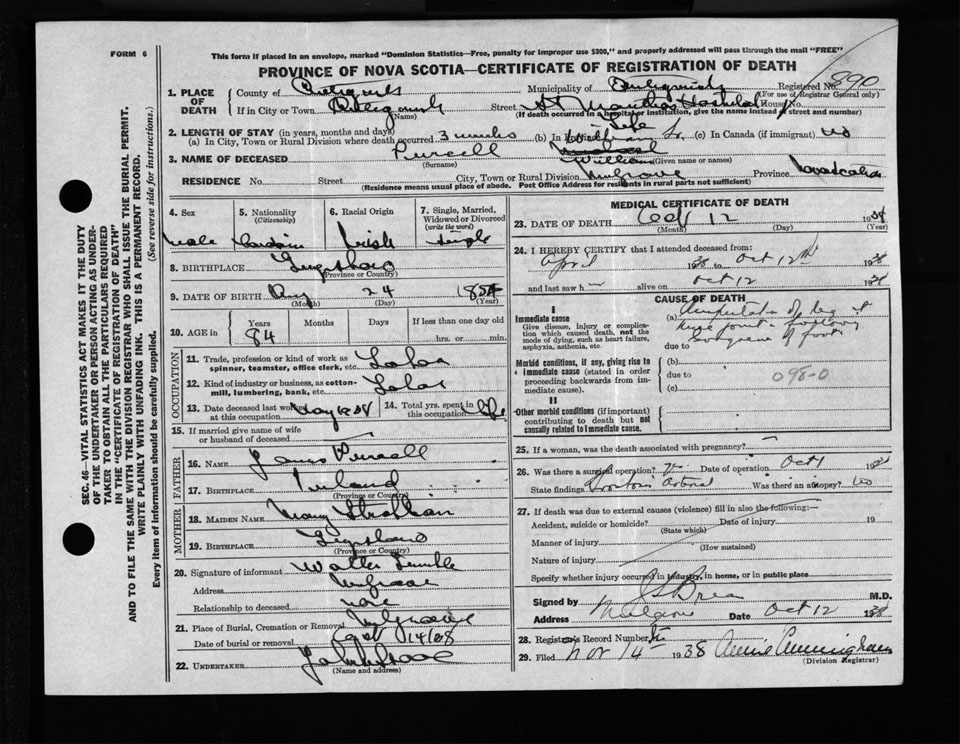 FORM 6
This form if placed in an envelope, marked "Dominion Statistics—Free, penalty for improper use $300," and properly addressed will pass through the mail "FREE"
PROVINCE OF NOVA SCOTIA—CERTIFICATE OF REGISTRATION OF DEATH
SEC. 46—VITAL STATISTICS ACT MAKES IT THE DUTY
OF THE UNDERTAKER OR PERSON ACTING AS UNDER-
TAKER TO OBTAIN ALL THE PARTICULARS REQUIRED
IN THE "CERTIFICATE OF REGISTRATION OF DEATH"
AND TO FILE THE SAME WITH THE DIVISION REGISTRAR WHO SHALL ISSUE THE BURIAL PERMIT.
WRITE PLAINLY WITH UNFADING INK. THIS IS A PERMANENT RECORD.
Every item of information should be carefully supplied. (See reverse side for instructions.)
1. PLACE OF DEATH
County of Antigonish Municipality of Antigonish Registered No. 890
(For use of Registrar General only)
If in City or Town Antigonish Street St Marthas Hospital House No.
(Name) (If death occurred in a hospital or institution, give the name instead of street and number)
2. LENGTH OF STAY (in years, months and days)
(a) In City, Town or Rural Division where death occurred 3 weeks (b) In Life (c) In Canada (if immigrant) no
3. NAME OF DECEASED Purcell William
(Surname) (Given name or names)
RESIDENCE No. Street City, Town or Rural Division Mulgrave Province Nova Scotia
(Residence means usual place of abode. Post Office Address for residents in rural parts not sufficient)
4. Sex
Male
5. Nationality (Citizenship)
6. Racial Origin
Irish
7. Single, Married, Widowed or Divorced (write the word)
Single
8. BIRTHPLACE Guysboro
(Province or Country)
9. DATE OF BIRTH 24 1854
(Month) (Day) (Year)
10. AGE in Years Months Days If less than one day old
84 hrs. or min.
OCCUPATION
11. Trade, profession or kind of work as spinner, teamster, office clerk, etc. Labor
12. Kind of industry or business, as cotton-mill, lumbering, bank, etc. Labor
13. Date deceased last worked at this occupation
14. Total yrs. spent in this occupation life
15. If married give name of wife or husband of deceased
FATHER
16. NAME James Purcell
17. BIRTHPLACE Ireland
(Province or Country)
MOTHER
18. MAIDEN NAME Mary
19. BIRTHPLACE Guysboro
(Province or Country)
20. Signature of informant Walter
Address Mulgrave
Relationship to deceased
21. Place of Burial, Cremation or Removal Mulgrave
Date of burial or removal Oct 14/38
22. UNDERTAKER
(Name and address)
MEDICAL CERTIFICATE OF DEATH
23. DATE OF DEATH Oct 12 1938
(Month) (Day) (Year)
24. I HEREBY CERTIFY that I attended deceased from:
April 1938 to Oct 12th 1938
and last saw h alive on Oct 12 1938
CAUSE OF DEATH
I
Immediate cause
Give disease, injury or complication which caused death, not the mode of dying, such as heart failure, asphyxia, asthenia, etc.
(a) Amputation of leg at
knee joint following
due to gangrene of foot
Morbid conditions, if any, giving rise to immediate cause (stated in order proceeding backwards from immediate cause).
(b)
due to 098-0
(c)
II
Other morbid conditions (if important) contributing to death but not causally related to immediate cause.
25. If a woman, was the death associated with pregnancy?
26. Was there a surgical operation? Date of operation Oct 1 1938
State findings Was there an autopsy? no
27. If death was due to external causes (violence) fill in also the following:—
Accident, suicide or homicide? Date of injury 19
(State which)
Manner of injury
(How sustained)
Nature of injury
Specify whether injury occurred in industry, in home, or in public place
Signed by M.D.
Address Mulgrave Date Oct 12 1938
28. Registrars Record Number
29. Filed Nov 14th 1938 Annie Cunningham
(Division Registrar)